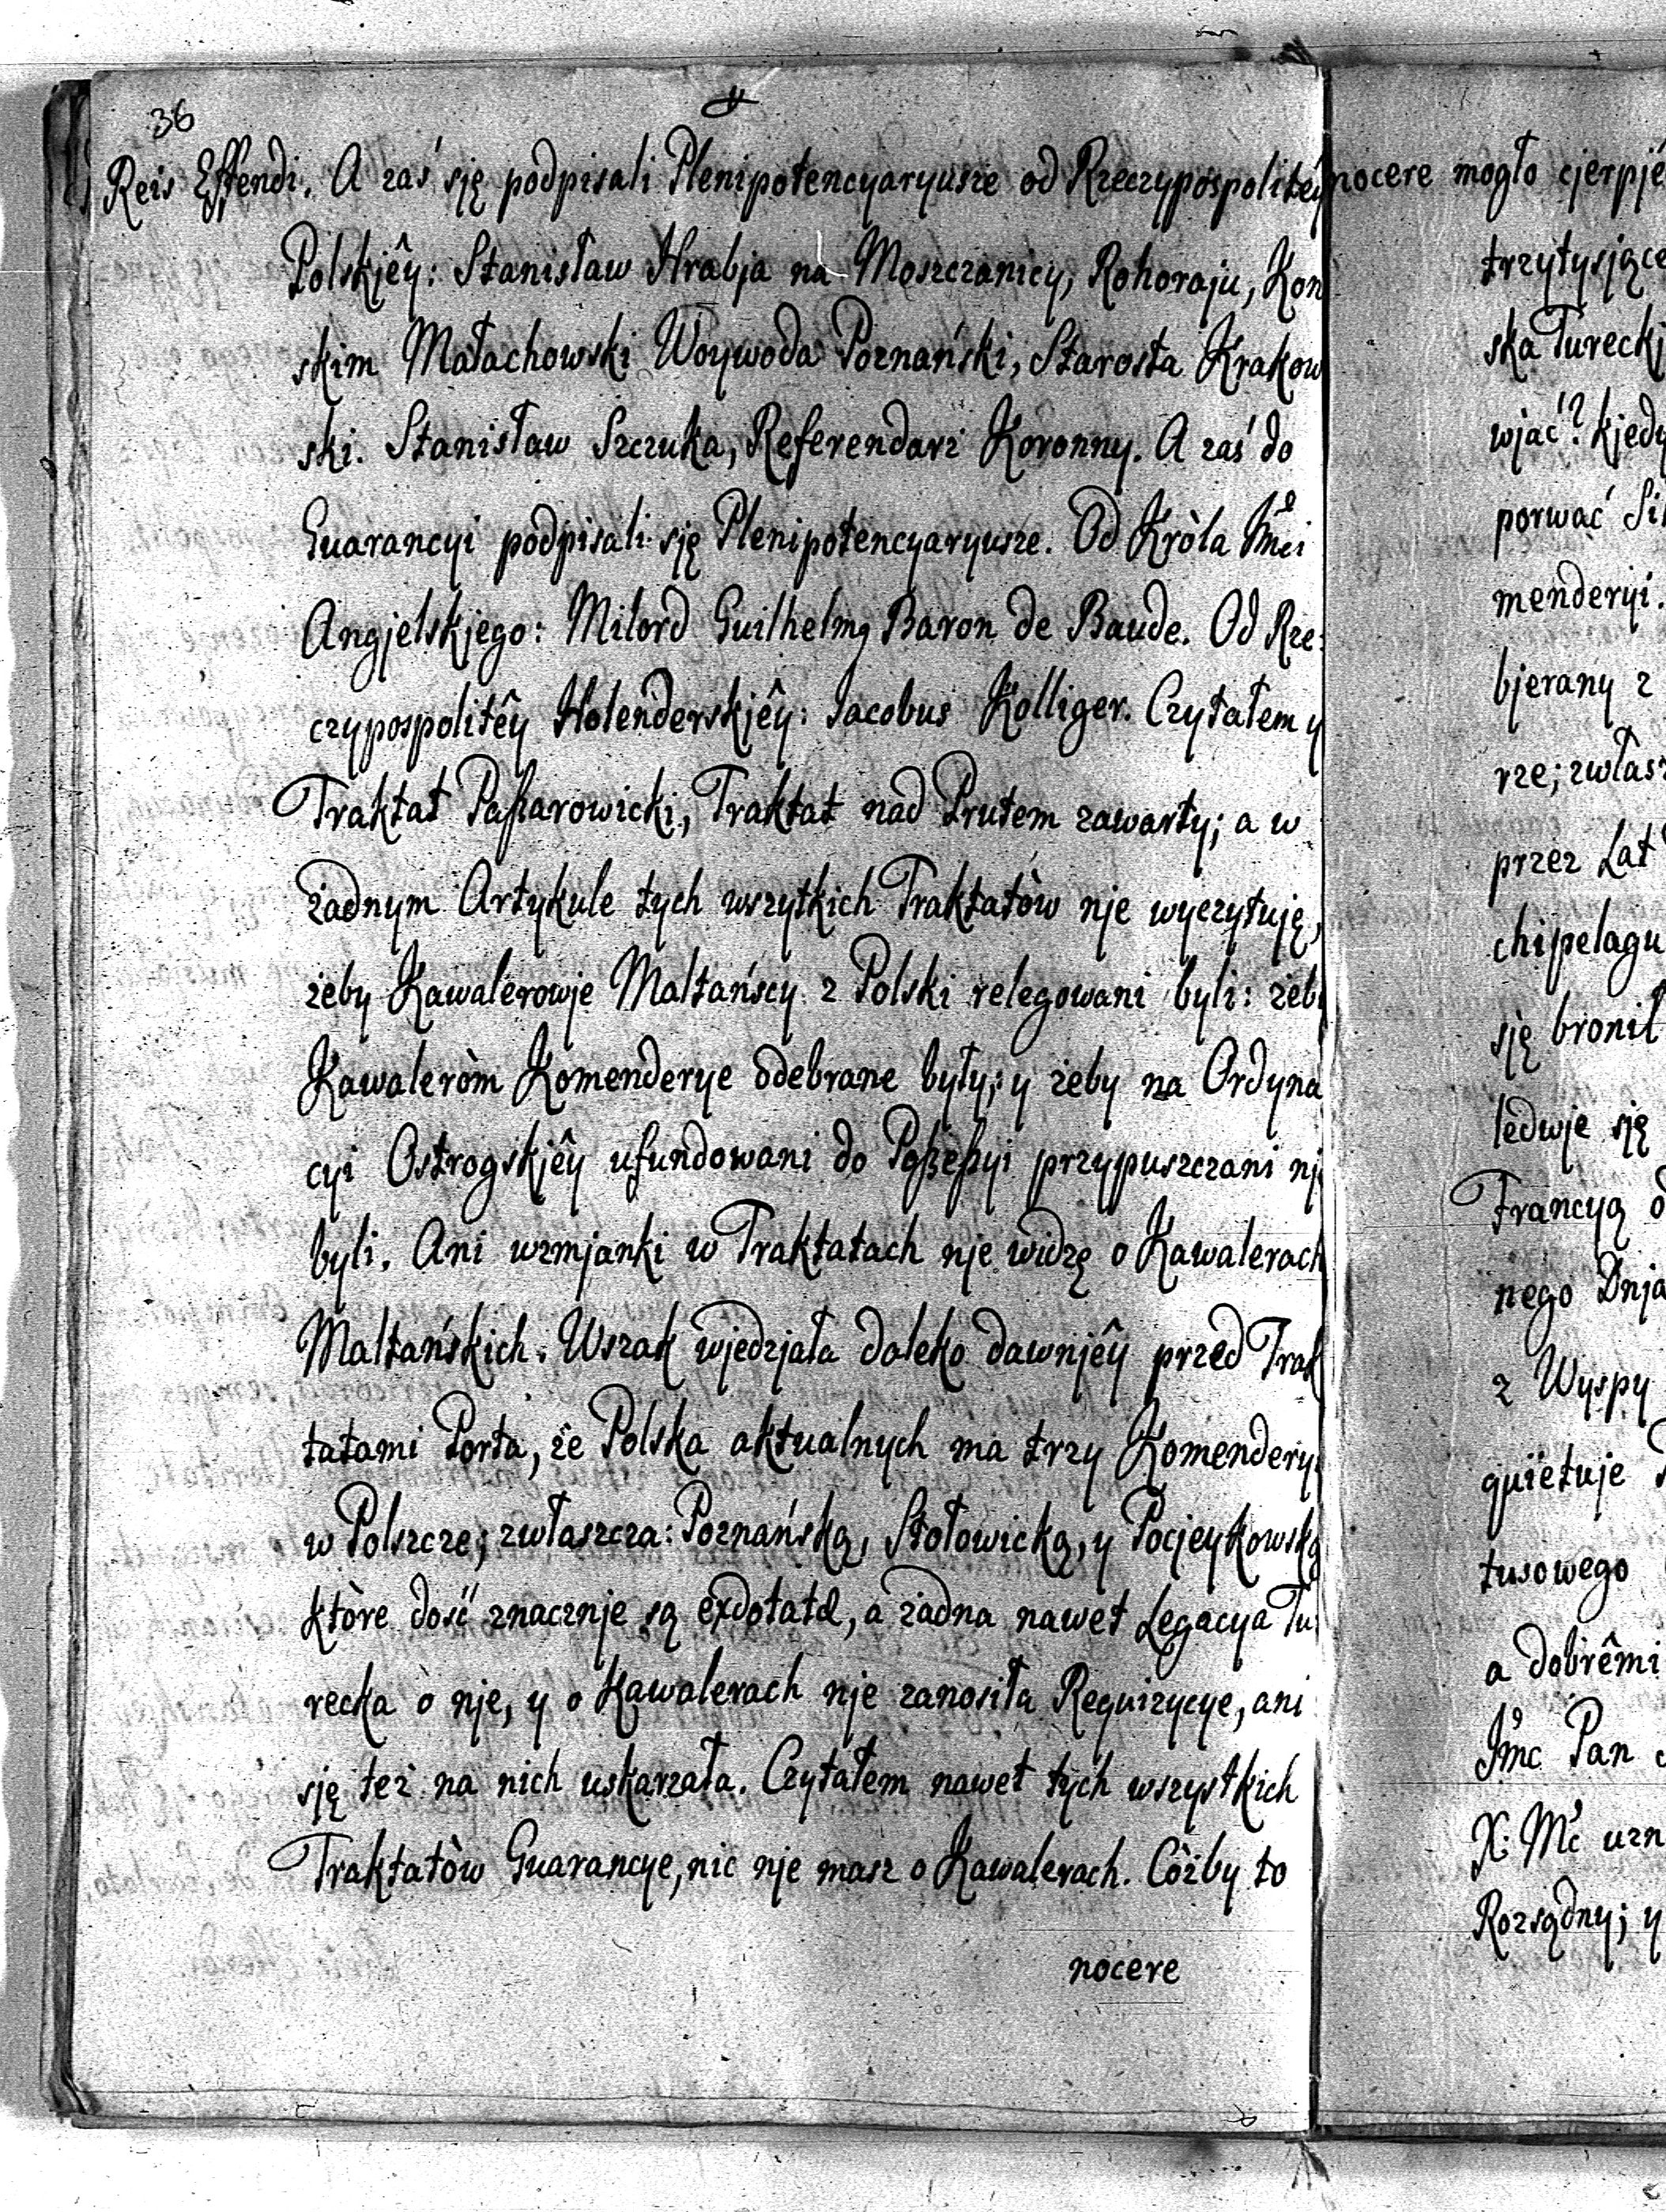 36
Reis Effendi. A zaś się podpisali Plenipotencyaryusze od Rzeczypospolitéy
Polskjêy: Stanisław Hrabja na Moszczanicy, Rohoraju, Kon
skim Małachowski Woywoda Poznański, Starosta Krakow
ski. Stanisław Szczuka, Referendarz Koronny. A zaś do
Guarancyi podpisali się Plenipotencyaryusze. Od Kròla Jm̃ci
Angjelskjego: Milord Guilhelmg Baron de Baude. Od Rze:
czypospolitêy Holenderskjêy: Jacobus Kolliger. Czytałem y
Traktat Paßarowicki, Traktat nad Prutem zawarty; a w
żadnym Artykule tych wszytkich Traktatòw nje wyczytuję,
żeby Kawalerowje Maltańscy z Polski relegowani byli: żeby
Kawaleròm Komenderye odebrane były; y żeby na Ordyna
cyi Ostrogskjêy ufundowani do Poßeßyi przypuszczani nje
byli. Ani wzmjanki w Traktatach nje widzę o Kawalerach
Maltańskich. Wszak wjedzjała daleko dawnjêy przed Trak
tatami Porta, że Polska aktualnych ma trzy Komenderye
w Polszcze; zwłaszcza: Poznańską, Stołowicką, y Pocjeykowską
które dość znacznje są exdotatæ, a żadna nawet Legacya Tu:
recka o nje, y o Kawalerach nje zanosiła Requizycye, ani
się też na nich uskarzała. Czytałem nawet tych wszystkich
Traktatòw Guarancye, nic nje masz o Kawalerach. Còżby to
nocere
nocere mogło cjerpjé
trzytysjące
ska Tureckj
wjać? kjedy
porwać
menderyi.
bjerany z
rze; zwłasz
przez Lat
chipelagu
się bronił
ledwje się
Francyą
nego Dnja
z Wyspy
quietuje
tusowego
a dobrêmi
Jmc Pan
X: Mc uzn
Rozsądny; y